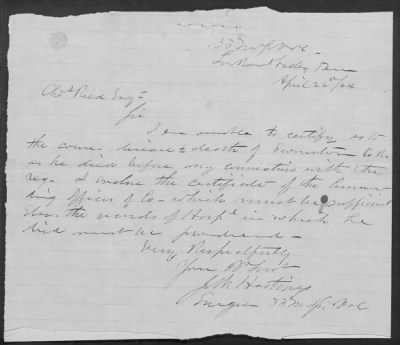 33d N.J. Vol.
Lookout Valley Ten
April 26th /64
Reed Esqr
Sir
I am unable to certify as to
the cause disease & death of
as he died before my connection with the
reg. I enclose the certificate of the Comman
ding Officer of Co - which must be sufficient
the records of Hospl in which he
died must be produced -
Very Respectfully
Your Obt Srvt
J M Hastings
Surgeon 33 N.J. Vol